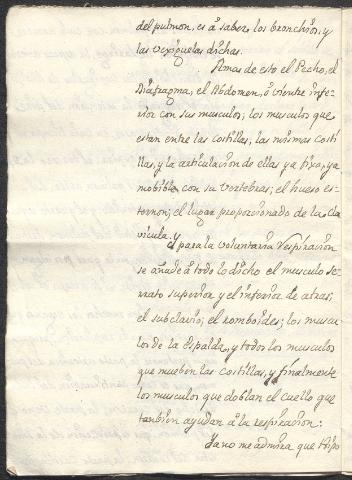 del pulmon, es à saber, los bronchios, y
las vexiguelas dichas.
Amas de esto el Pecho, el
Diafragma, el Abdomen, ò vientre infe-
rior con sus musculos; los musculos que
estan entre las costillas; las mismas costi
llas, y la articulacion de ellas ya fixa, ya
mobible con su vertebras; el hueso es-
ternon; el lugar proporcionado de las cla
vicula. y
para la voluntaria respiracion
se añade à todo lo dicho el musculo se-
rrato superior y el inferior de atras;
el subclavio; el romboides; los muscu
los de la espalda, y todos los musculos
que mueben las costillas, y finalmente
los musculos que doblan el cuello que
tambien ayudan à la respiracion:
Ya no me admira que Hipo